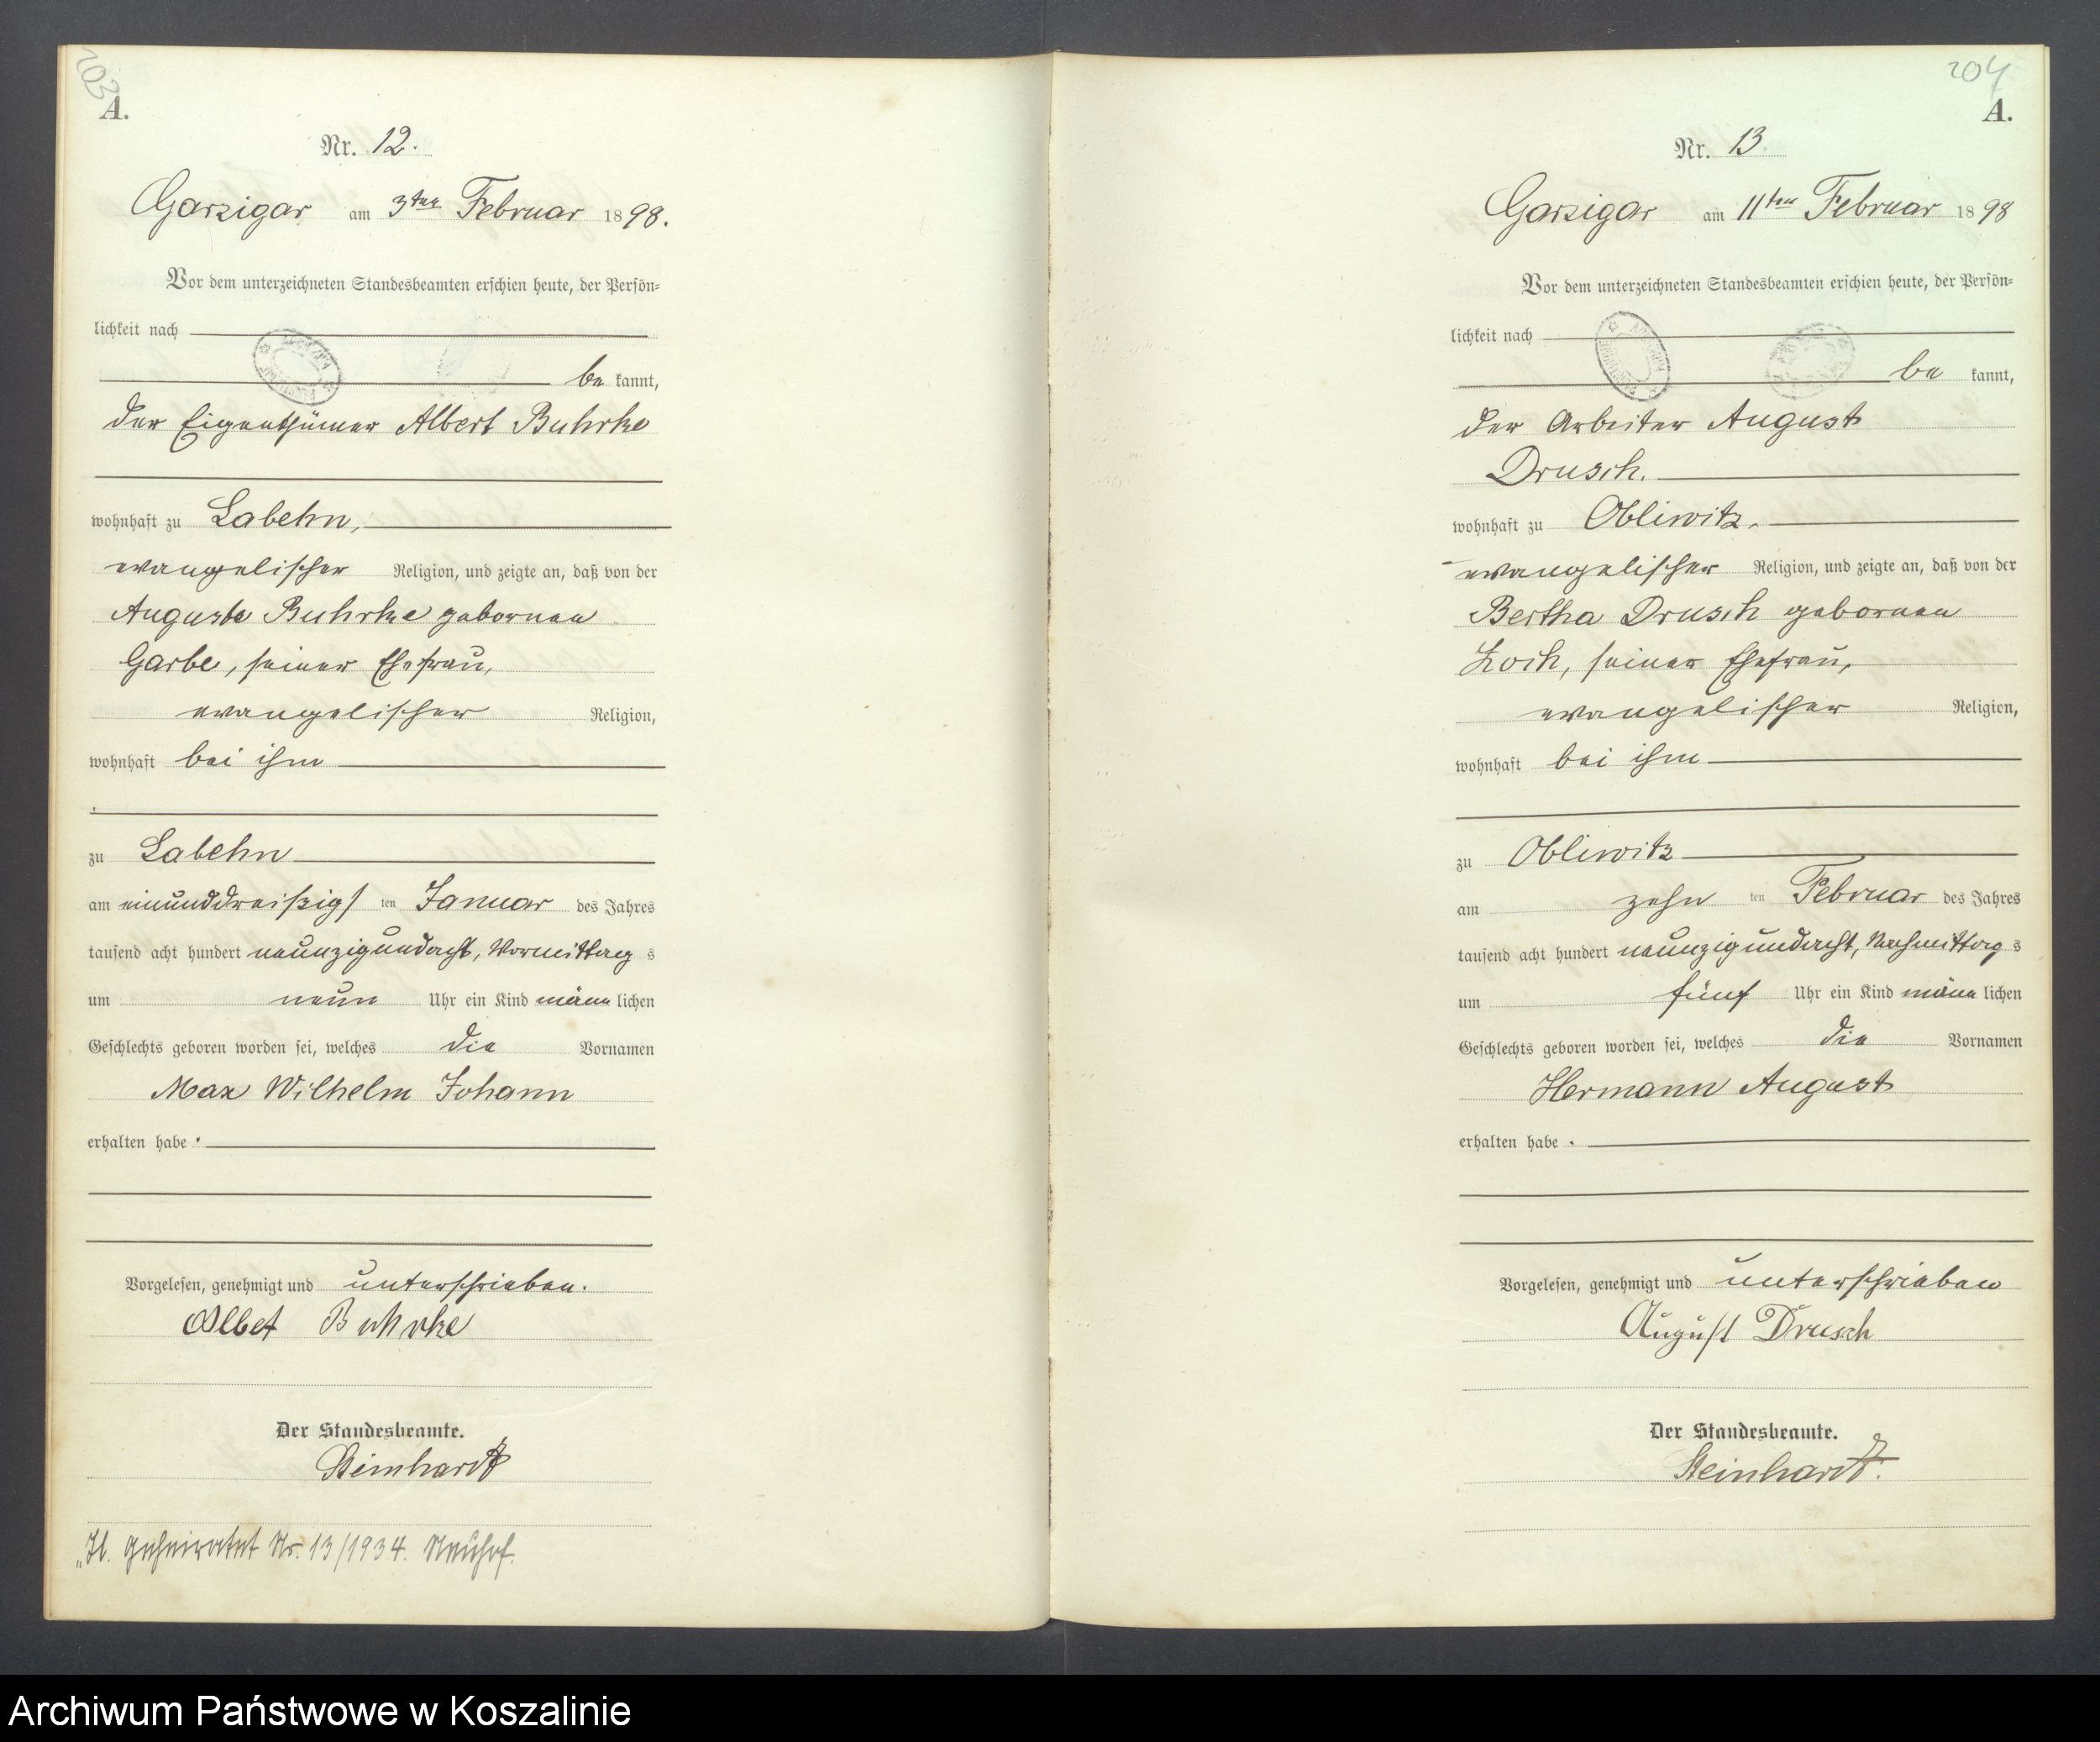 103
A.
Nr. 12.
Garzigar am 3ten Februar 1898.
Vor dem unterzeichneten Standesbeamten erschien heute, der Persön-
lichkeit nach
be kannt,
der Eigenthümer Albert Buhrke
wohnhaft zu Labehn,
evangelischer Religion, und zeigte an, daß von der
Auguste Buhrke gebornen
Garbe, seiner Ehefrau,
evangelischer Religion,
wohnhaft bei ihm
zu Labehn
am einunddreißigs ten Januar des Jahres
tausend acht hundert neunzigundacht, Vormittag s
um neun Uhr ein Kind männ lichen
Geschlechts geboren worden sei, welches die Vornamen
Max Wilhelm Johann
erhalten habe.
Vorgelesen, genehmigt und unterschrieben.
Albet Buhrke
Der Standesbeamte.
Steinhardt
geheiratet Nr. 13/1934. Neuhof.
204
A.
Nr. 13
Garzigar am 11ten Februar 1898
Vor dem unterzeichneten Standesbeamten erschien heute, der Persön-
lichkeit nach
be kannt,
der Arbeiter August
Drusch.
wohnhaft zu Obliwitz,
evangelischer Religion, und zeigte an, daß von der
Bertha Drusch gebornen
Koch, seiner Ehefrau,
evangelischer Religion,
wohnhaft bei ihm
zu Obliwitz
am zehn ten Februar des Jahres
tausend acht hundert neunzigundacht, Nachmittag s
um fünf Uhr ein Kind männ lichen
Geschlechts geboren worden sei, welches die Vornamen
Hermann August
erhalten habe.
Vorgelesen, genehmigt und unterschrieben
August Drusch
Der Standesbeamte.
Steinhardt.
Archiwum Państwowe w Koszalinie